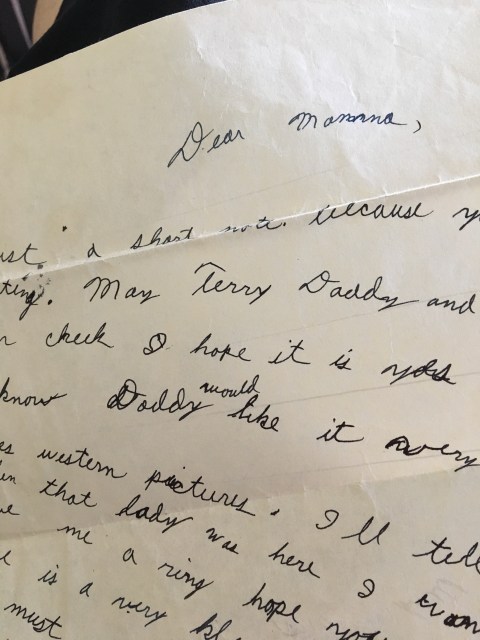 Dear Momma,
ust a short note. because y
ting. May Terry Daddy and
r check I hope it is yes
know Daddy would like it very
es western pictures. I'll tell
en that lady was here I wan
e me a ring hope you
e is a very
must